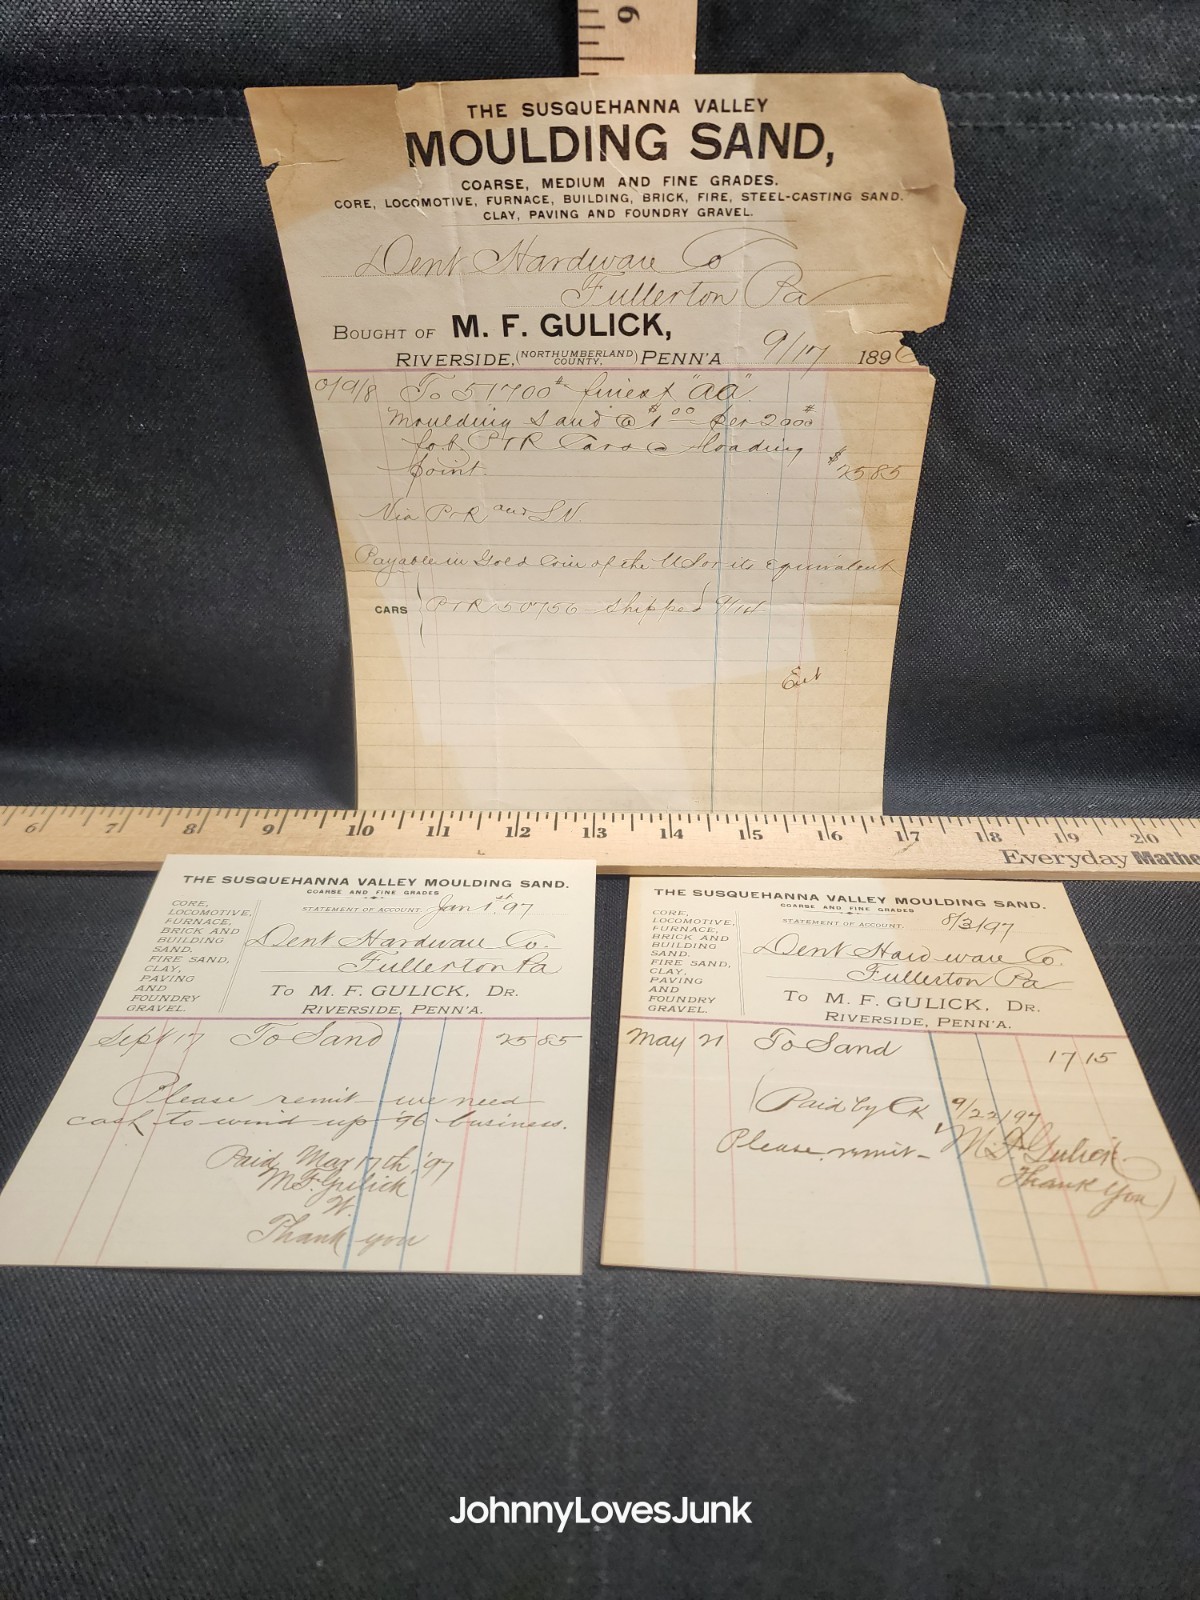 6
THE SUSQUEHANNA VALLEY
MOULDING SAND,
COARSE, MEDIUM AND FINE GRADES.
CORE, LOCOMOTIVE, FURNACE, BUILDING, BRICK, FIRE, STEEL-CASTING SAND.
CLAY, PAVING AND FOUNDRY GRAVEL.
Dent Hardware Co
Fullerton Pa
BOUGHT OF M. F. GULICK,
RIVERSIDE, (NORTHUMBERLAND COUNTY,) PENN'A 9/17 1896
To 51700# finest "aa"
Moulding Sand @ $1 00 per 2000#
fob P+R Cars @ loading
point. $25 85
Via P+R and LV.
Payable in Gold Coin of the US or its Equivalent
CARS P+R 50756 shipped 9/14
6 7 8 9 10 11 12 13 14 15 16 17 18 19 20
Everyday Mathe
THE SUSQUEHANNA VALLEY MOULDING SAND.
COARSE AND FINE GRADES
STATEMENT OF ACCOUNT. Jan 1st 97
CORE,
LOCOMOTIVE,
FURNACE,
BRICK AND
BUILDING
SAND.
FIRE SAND,
CLAY,
PAVING
AND
FOUNDRY
GRAVEL.
Dent Hardware Co.
Fullerton Pa
TO M. F. GULICK, DR.
RIVERSIDE, PENN'A.
Sept 17 To Sand 25 85
Please remit we need
cash to wind up '96 business.
Paid Mar 17th, '97
M F Gulick
Thank you
THE SUSQUEHANNA VALLEY MOULDING SAND.
COARSE AND FINE GRADES
STATEMENT OF ACCOUNT. 8/3/97
CORE,
LOCOMOTIVE,
FURNACE,
BRICK AND
BUILDING
SAND.
FIRE SAND,
CLAY,
PAVING
AND
FOUNDRY
GRAVEL.
Dent Hardware Co.
Fullerton Pa
TO M. F. GULICK, DR.
RIVERSIDE, PENN'A.
May 21 To Sand 17 15
Paid by CK 9/22/97
Please remit - M. F. Gulick
Thank You)
JohnnyLovesJunk